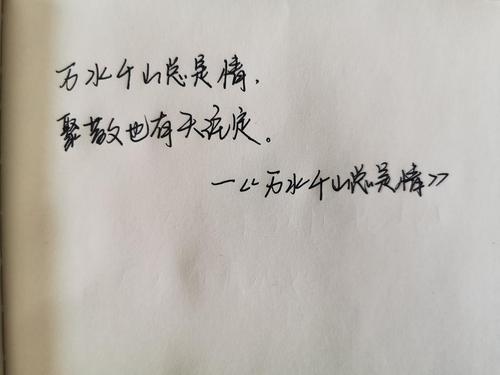 万水千山总是情，
聚散也有天注定。
—《万水千山总是情》